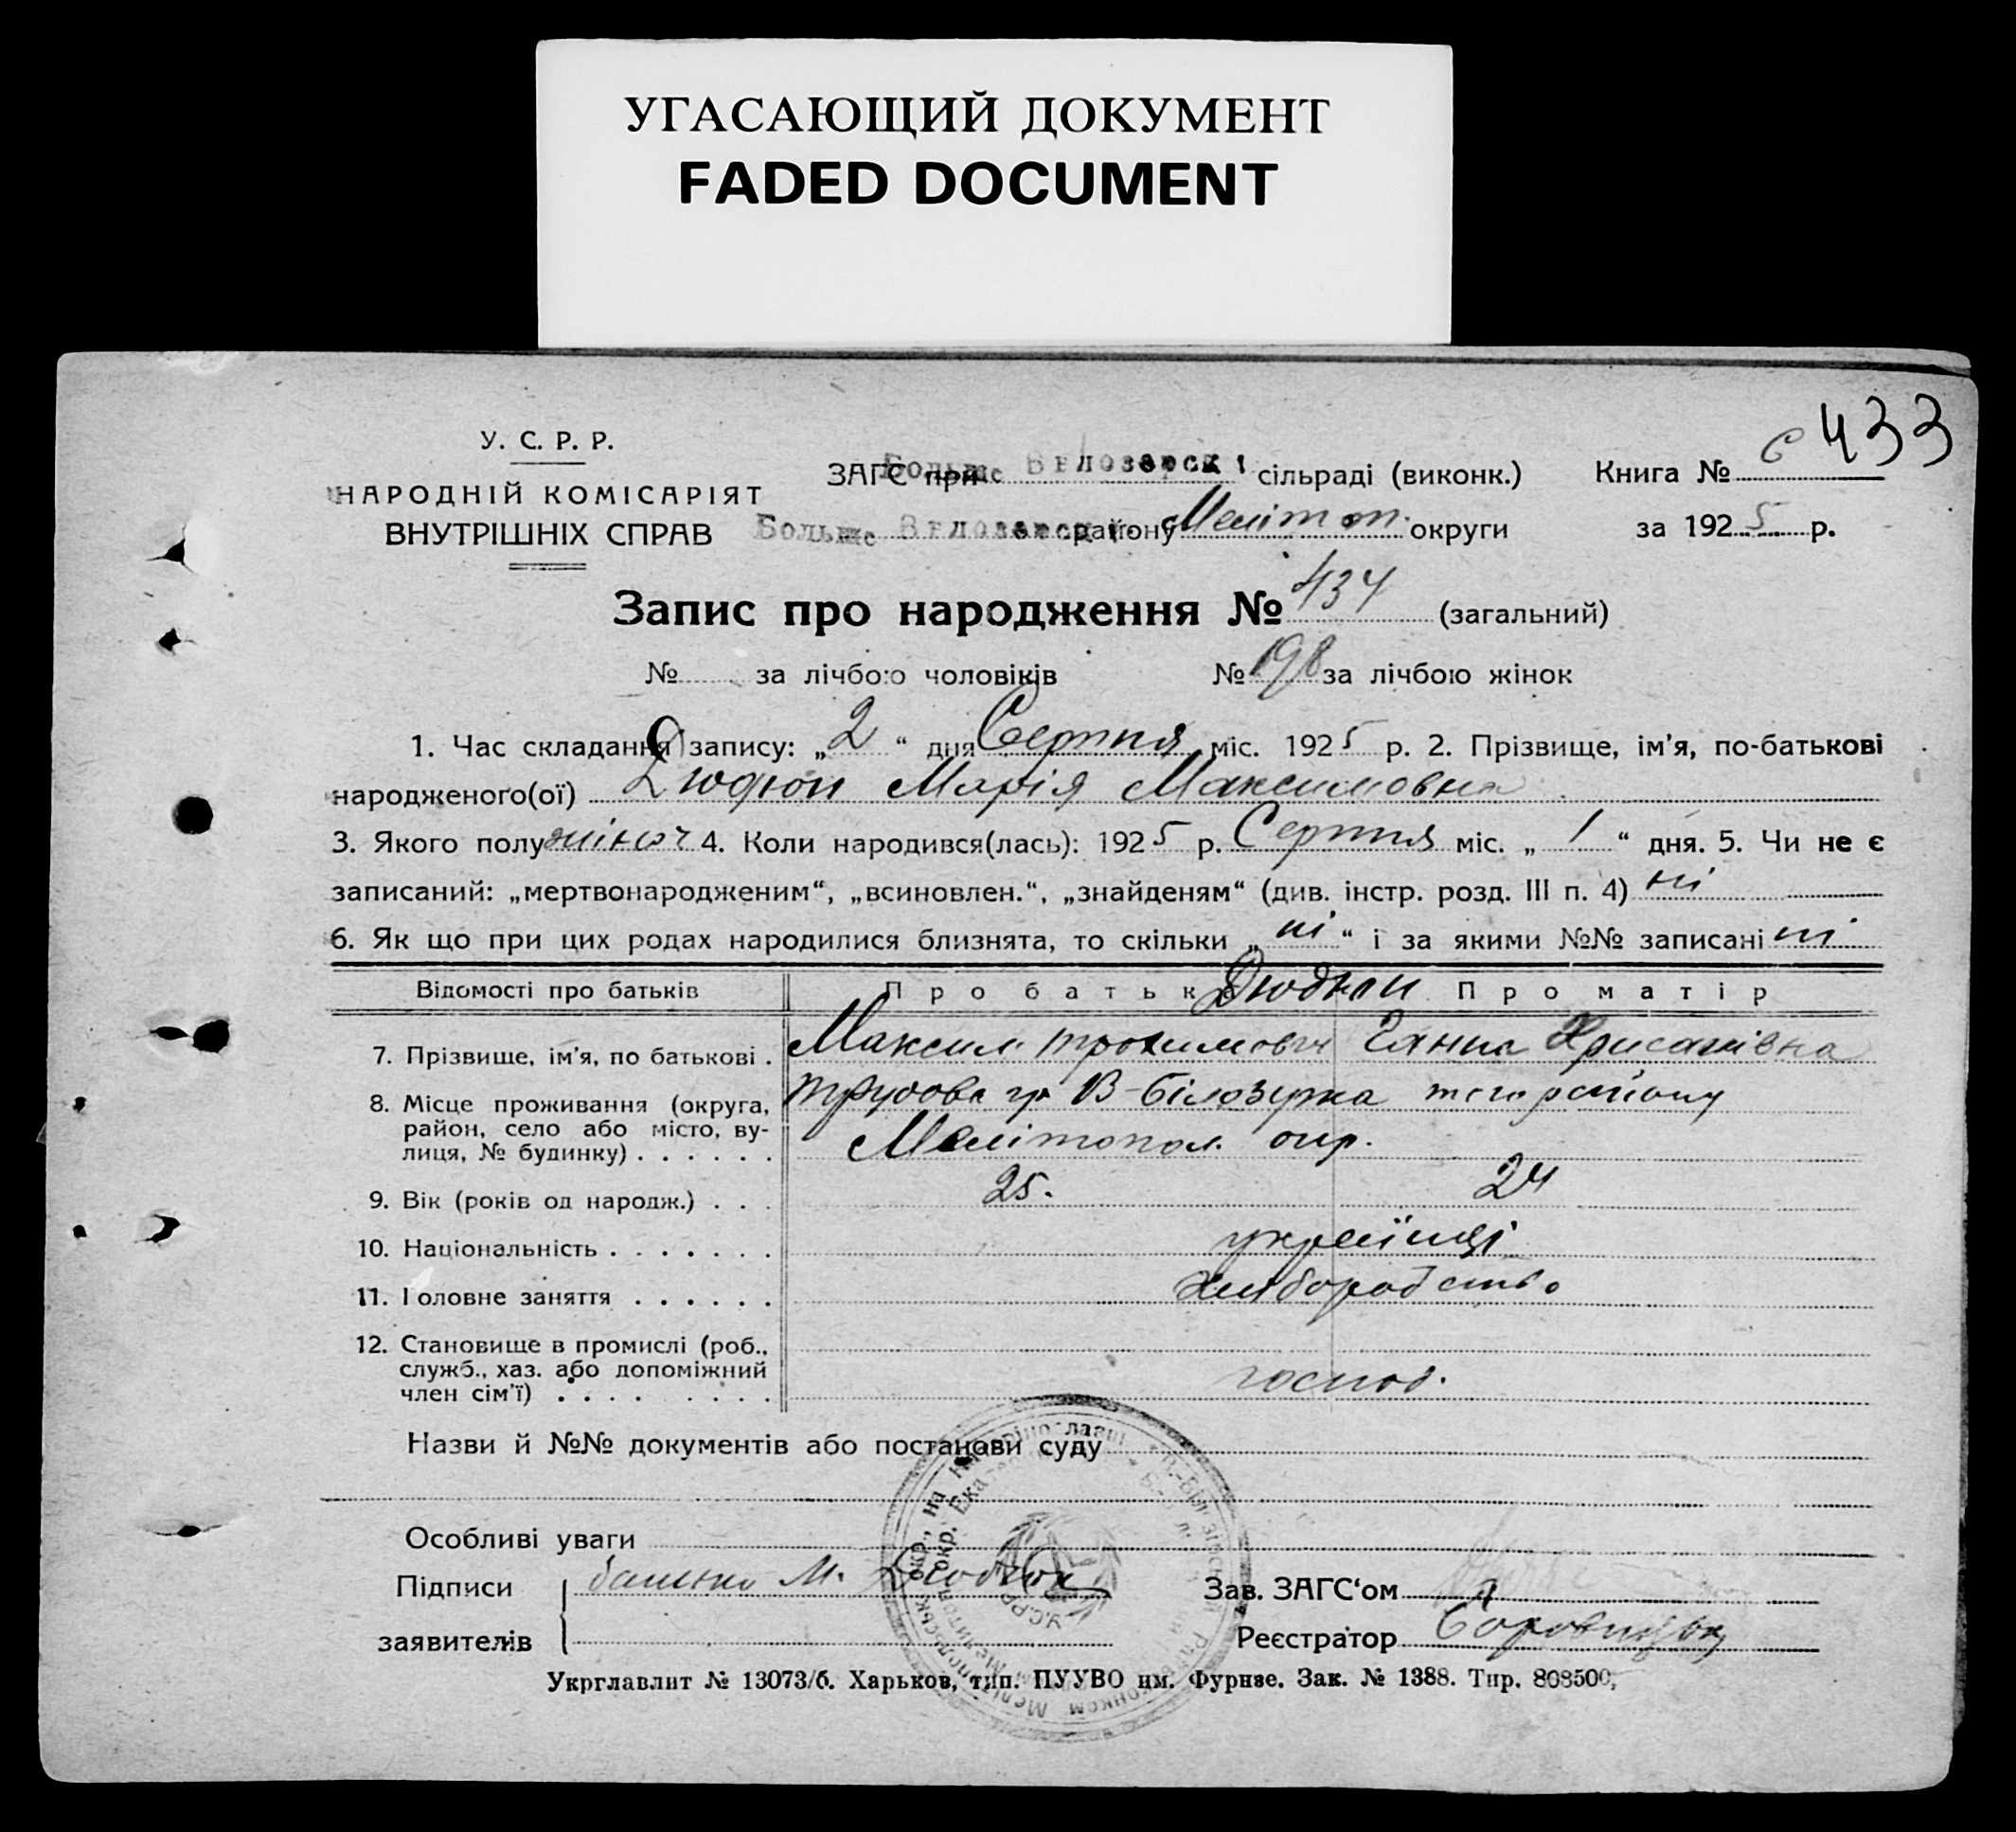 УГАСАЮЩИЙ ДОКУМЕНТ
FADED DOCUMENT
433
У. С. Р. Р.
НАРОДНІЙ КОМІСАРІЯТ
ВНУТРІШНІХ СПРАВ
ЗАГС при Больше Белозерск сільраді (виконк.)
Книга № 6
Больше Белозерск району Мелітоп. округи
за 1925 р.
Запис про народження № 434 (загальний)
№ за лічбою чоловіків № 198 за лічбою жінок
1. Час складання запису: „2“ дня Серпня міс. 1925 р. 2. Прізвище, ім’я, по-батькові
народженого(ої) Дюдюн Марія Максимовна
3. Якого полу жіноч 4. Коли народився(лась): 1925 р. Серпня міс. „1“ дня. 5. Чи не є
записаний: „мертвонародженим“, „всиновлен.“, „знайденям“ (див. інстр. розд. III п. 4) ні
6. Як що при цих родах народилися близнята, то скільки „ні“ і за якими №№ записані ні
Відомості про батьків Про батька Дюдюн Про матір
7. Прізвище, ім’я, по батькові . Максим Трохимович Ганна Хрисанівна
8. Місце проживання (округа, В-Білозірка того району
район, село або місто, ву-
лиця, № будинку) . . . . . . Мелітопол. окр.
9. Вік (років од народж.) . . . 25. 24
10. Національність . . . . . . . українці
11. Головне заняття . . . . . . хліборобство
12. Становище в промислі (роб.,
служб., хаз. або допоміжний
член сім’ї) . . . . . . . . господ.
Назви й №№ документів або постанови суду
Особливі уваги
Підписи батько М. Дюдюн
Зав. ЗАГС‘ом
заявителів
Реєстратор
Укрглавлит № 13073/б. Харьков, тип. ПУУВО им. Фурнзе. Зак. № 1388. Тир. 808500,